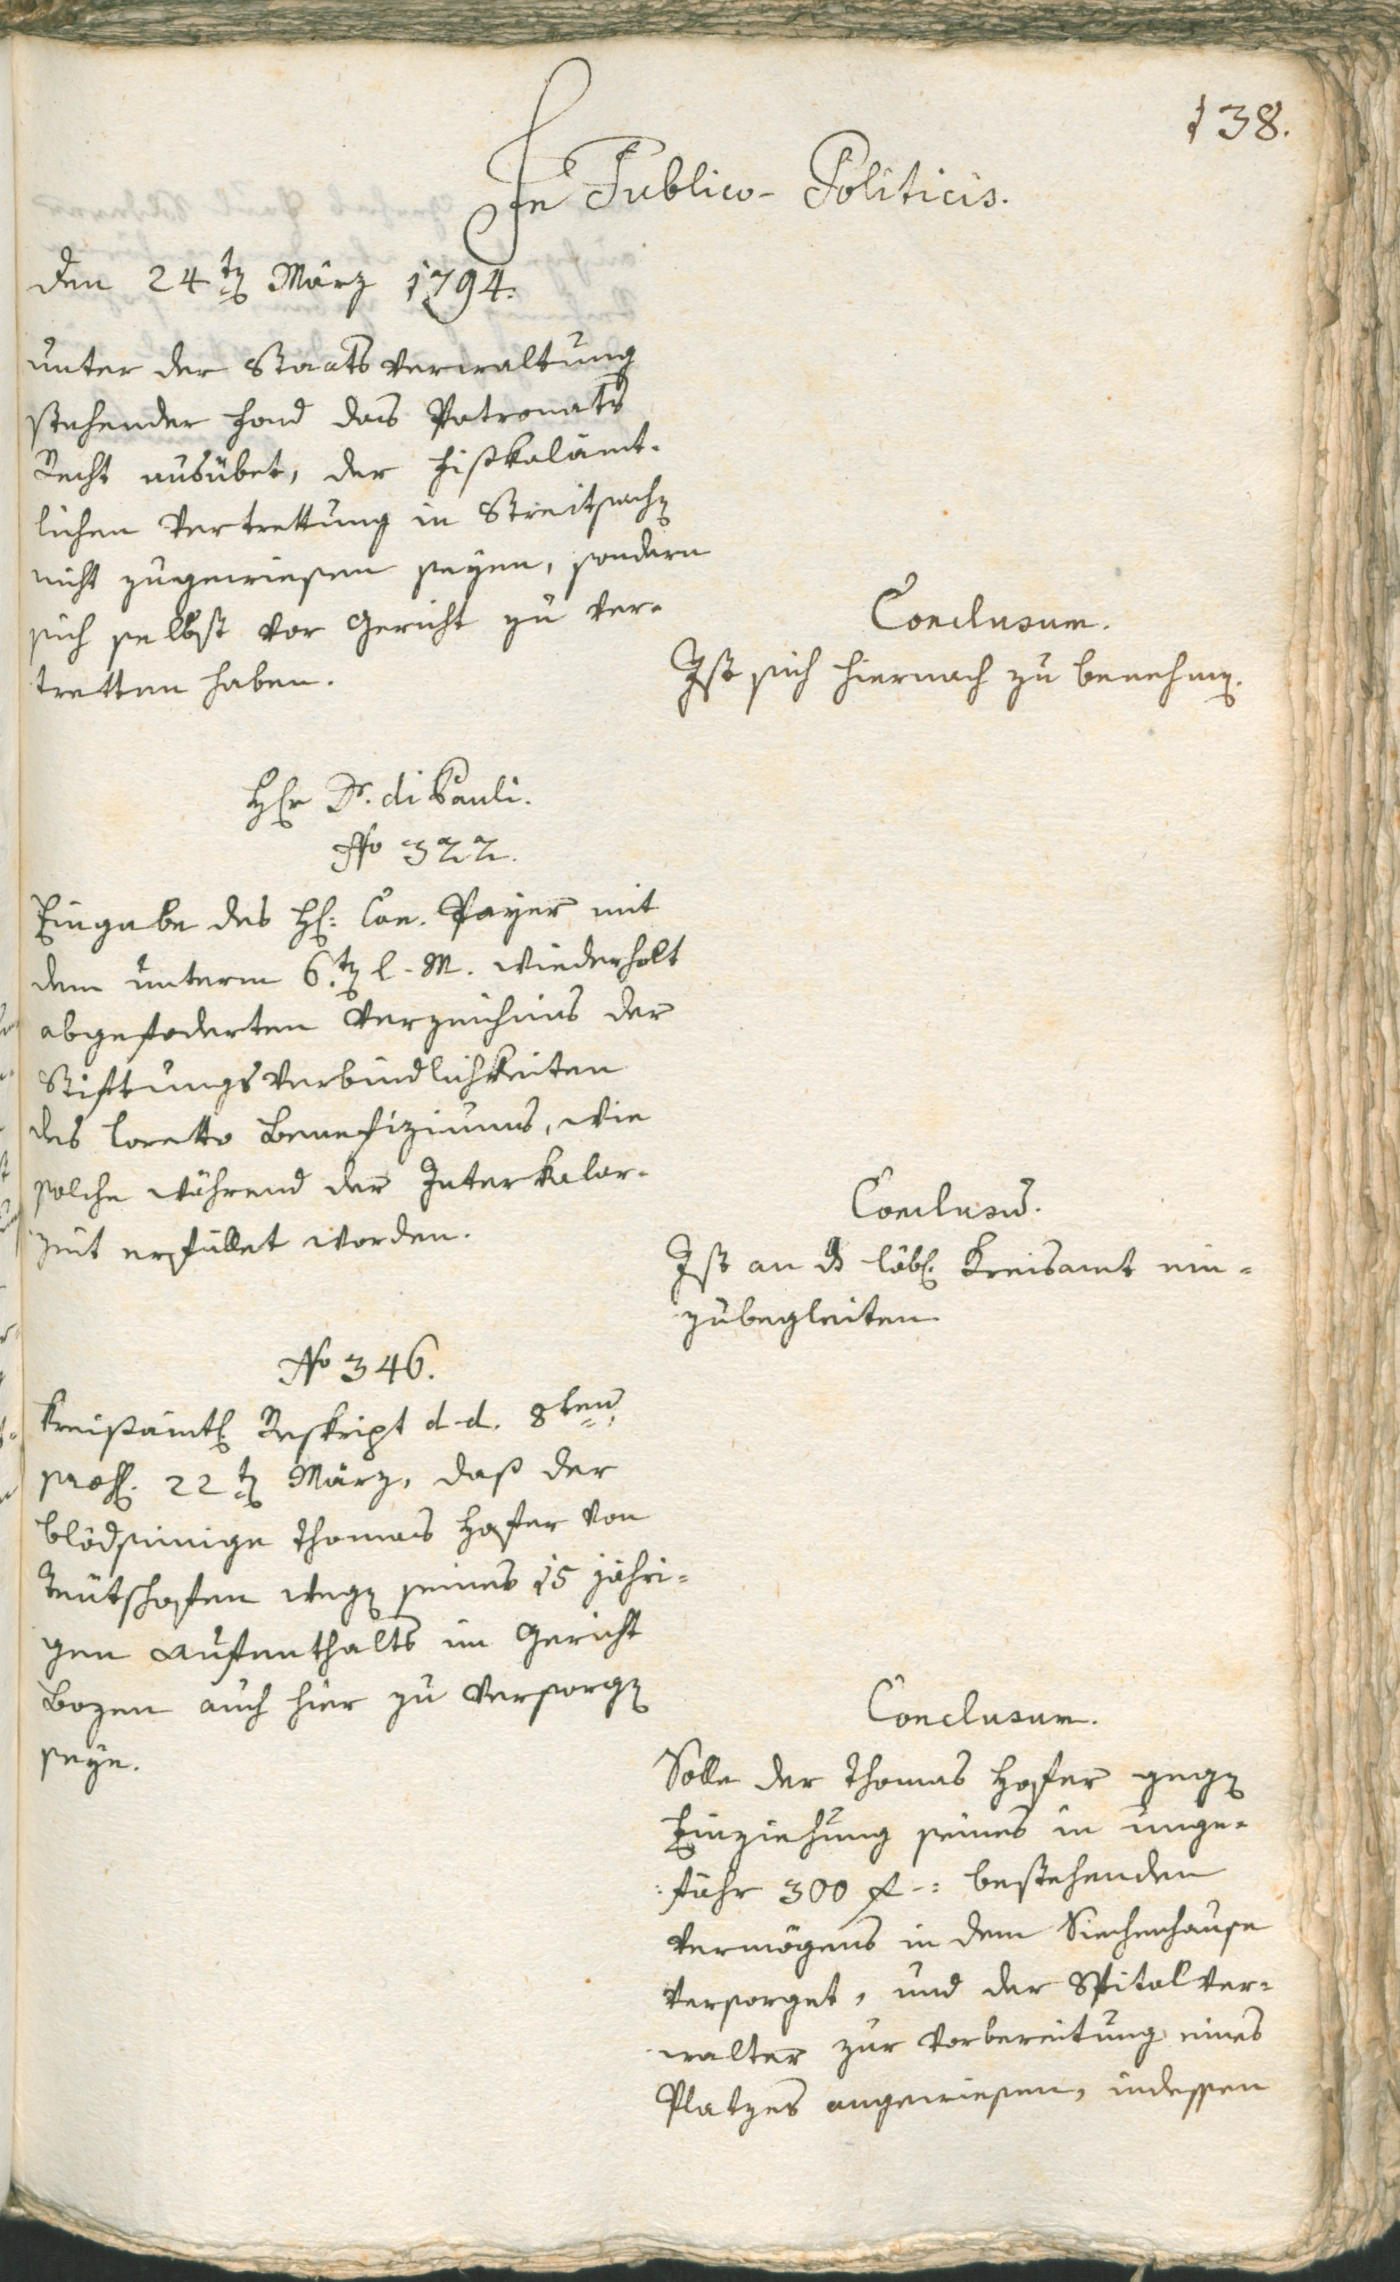 138.
In Publico-Politicis.
den 24ten März 1794.
unter der Staatsverwaltung
stehender Fond das Patronats
Recht ausübet, der Fißkalämt-
lichen Vertrettung in Streitsachen
nicht zugewiesen seyen, sondern
sich selbst vor Gericht zu ver-
tretten haben.
Conclusum.
Ist sich hiernach zu benehmen.
Herr Dr. di Pauli.
No 322.
Eingabe des H: Con. Payer mit
dem unterm 6ten l. M. wiederholt
abgefoderten Verzeichnis der
Stiftungsverbindlichkeiten
des Loretto Benefiziums, wie
solche während der Interkalar-
zeit erfüllet worden.
Conclusum.
Ist an das löbl. Kreisamt ein-
zubegleiten
No 346.
Kreißämtl Reskript d. d. 8ten
praes. 22ten März, daß der
blödsinige Thomas Hofer von
Teutschofen wegen seines 15 jähri-
gen Aufenthalts im Gericht
Bozen auch hier zu versorgen
seye.
Conclusum.
Solle der Thomas Hofer gegen
Einziehung seines in unge-
fähr 300 f -: bestehenden
Vermögens in dem Siechenhause
versorget, und der Spitalver-
walter zur Vorbereitung eines
Platzes angewiesen, indessen